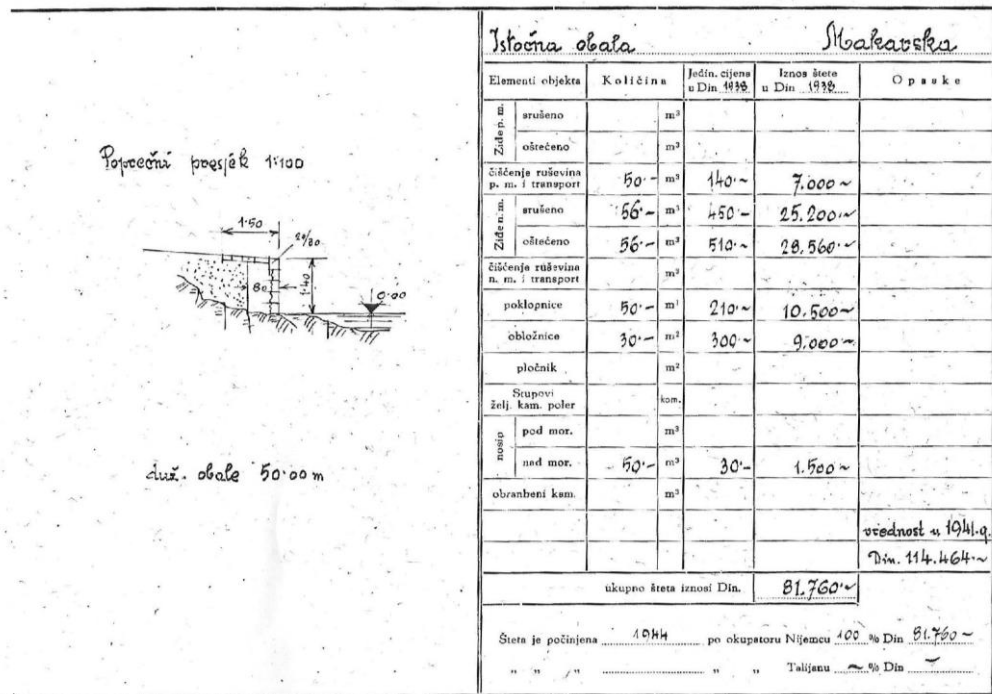 Poprečni presjek 1:100
1·50
20/80
80
1·40
0·00
duž. obale 50·00 m
Istočna obala Makarska
Elementi objekta Količina Jedin. cijena u Din 1938 Iznos štete u Din 1938 Opaske
Ziđe p. m. srušeno m³
oštećeno m³
čišćenje ruševina p. m. i transport 50·– m³ 140·~ 7.000~
Ziđe n. m. srušeno 56·– m³ 450·– 25.200·~
oštećeno 56·– m³ 510·~ 28.560·~
čišćenje ruševina n. m. i transport m³
poklopnice 50·– m¹ 210·~ 10.500~
obložnice 30·– m² 300·~ 9.000~
pločnik m²
Stupovi želj. kam. poler kom.
nosip pod mor. m³
nad mor. 50·– m³ 30·– 1.500~
obranbeni kam. m³
vrednost u 1941.g.
Din. 114.464·~
ukupno šteta iznosi Din. 81.760·~
Šteta je počinjena 1944 po okupatoru Nijemcu 100 % Din 81.760~
„ „ „ „ „ Talijanu ~ % Din ~